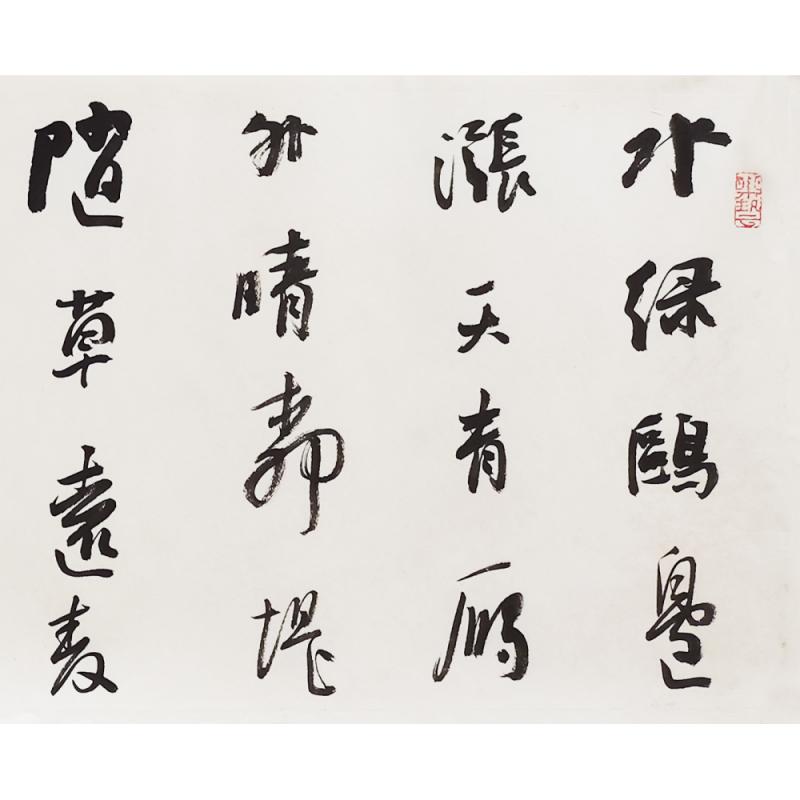 水綠鷗邊
漲天青雁
外晴柳堤
隨草遠麦